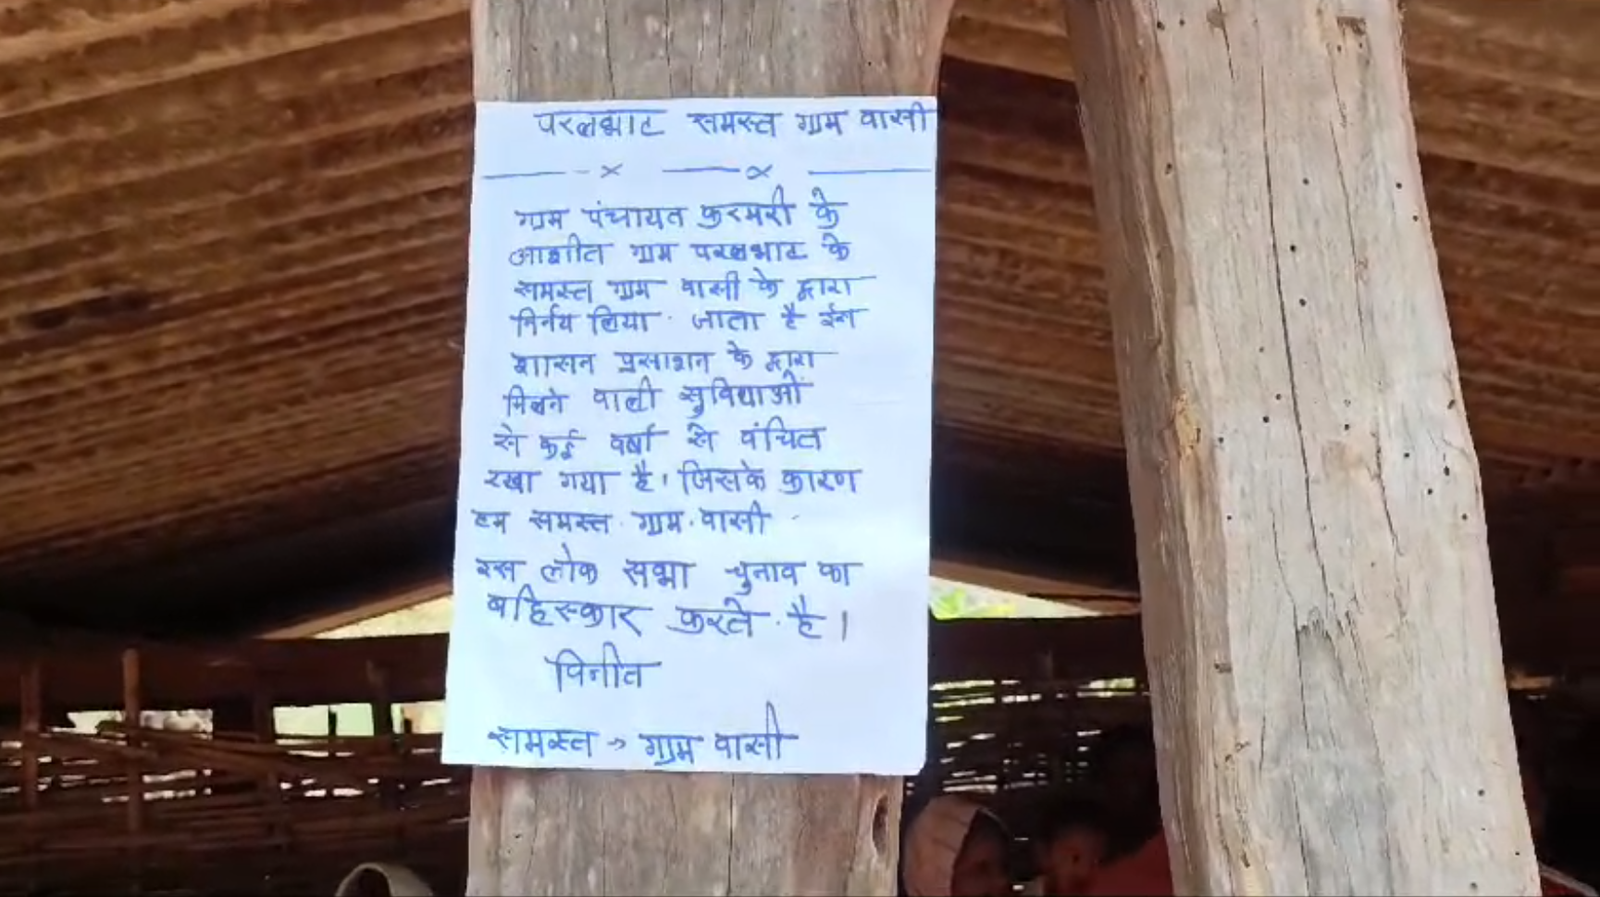 परलभाट समस्त ग्राम वासी
ग्राम पंचायत कुरमरी के
आश्रीत ग्राम परलभाट के
समस्त ग्राम वासी के द्वारा
निर्नय लिया जाता है
शासन प्रसाशन के द्वारा
मिलने वाली सुविधाओं
से कई वर्षो से वंचित
रखा गया है। जिसके कारण
हम समस्त ग्राम वासी
इस लोक सभा चुनाव का
बहिस्कार करते है।
विनीत
समस्त → ग्राम वासी